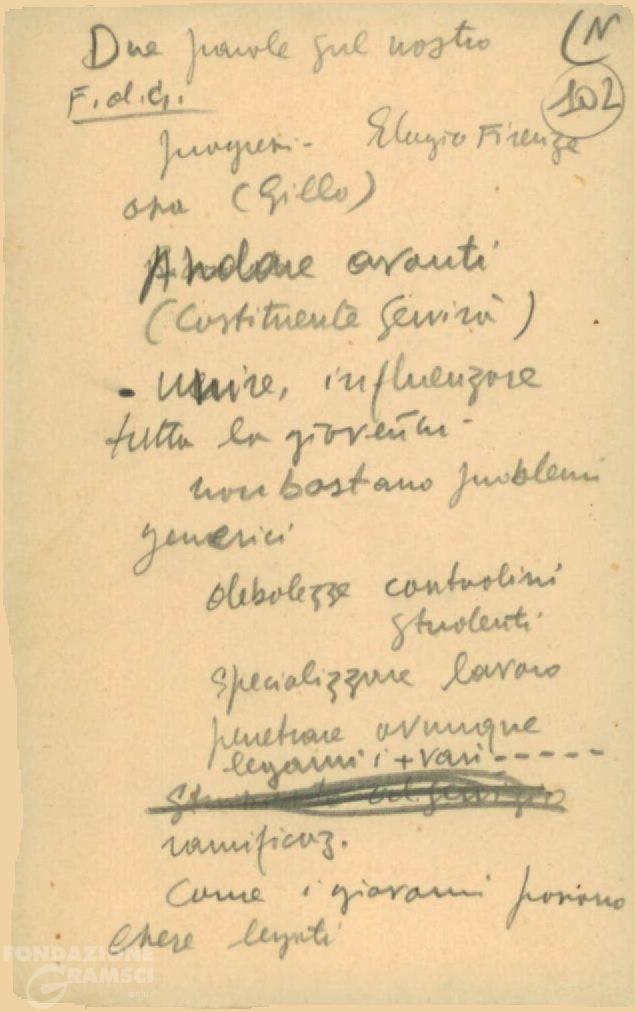 Due parole sul nostro
N
F.d.G.
102
progressi - Elogio Firenze
ora (Gillo)
Andare avanti
(Costituente
- unire, influenzare
tutta la gioventù -
non bastano problemi
generici
debolezze contadini
studenti
specializzare lavoro
penetrare ovunque
legami i + vari -----
ramificaz.
Come i giovani possono
essere legati
FONDAZIONE
GRAMSCI